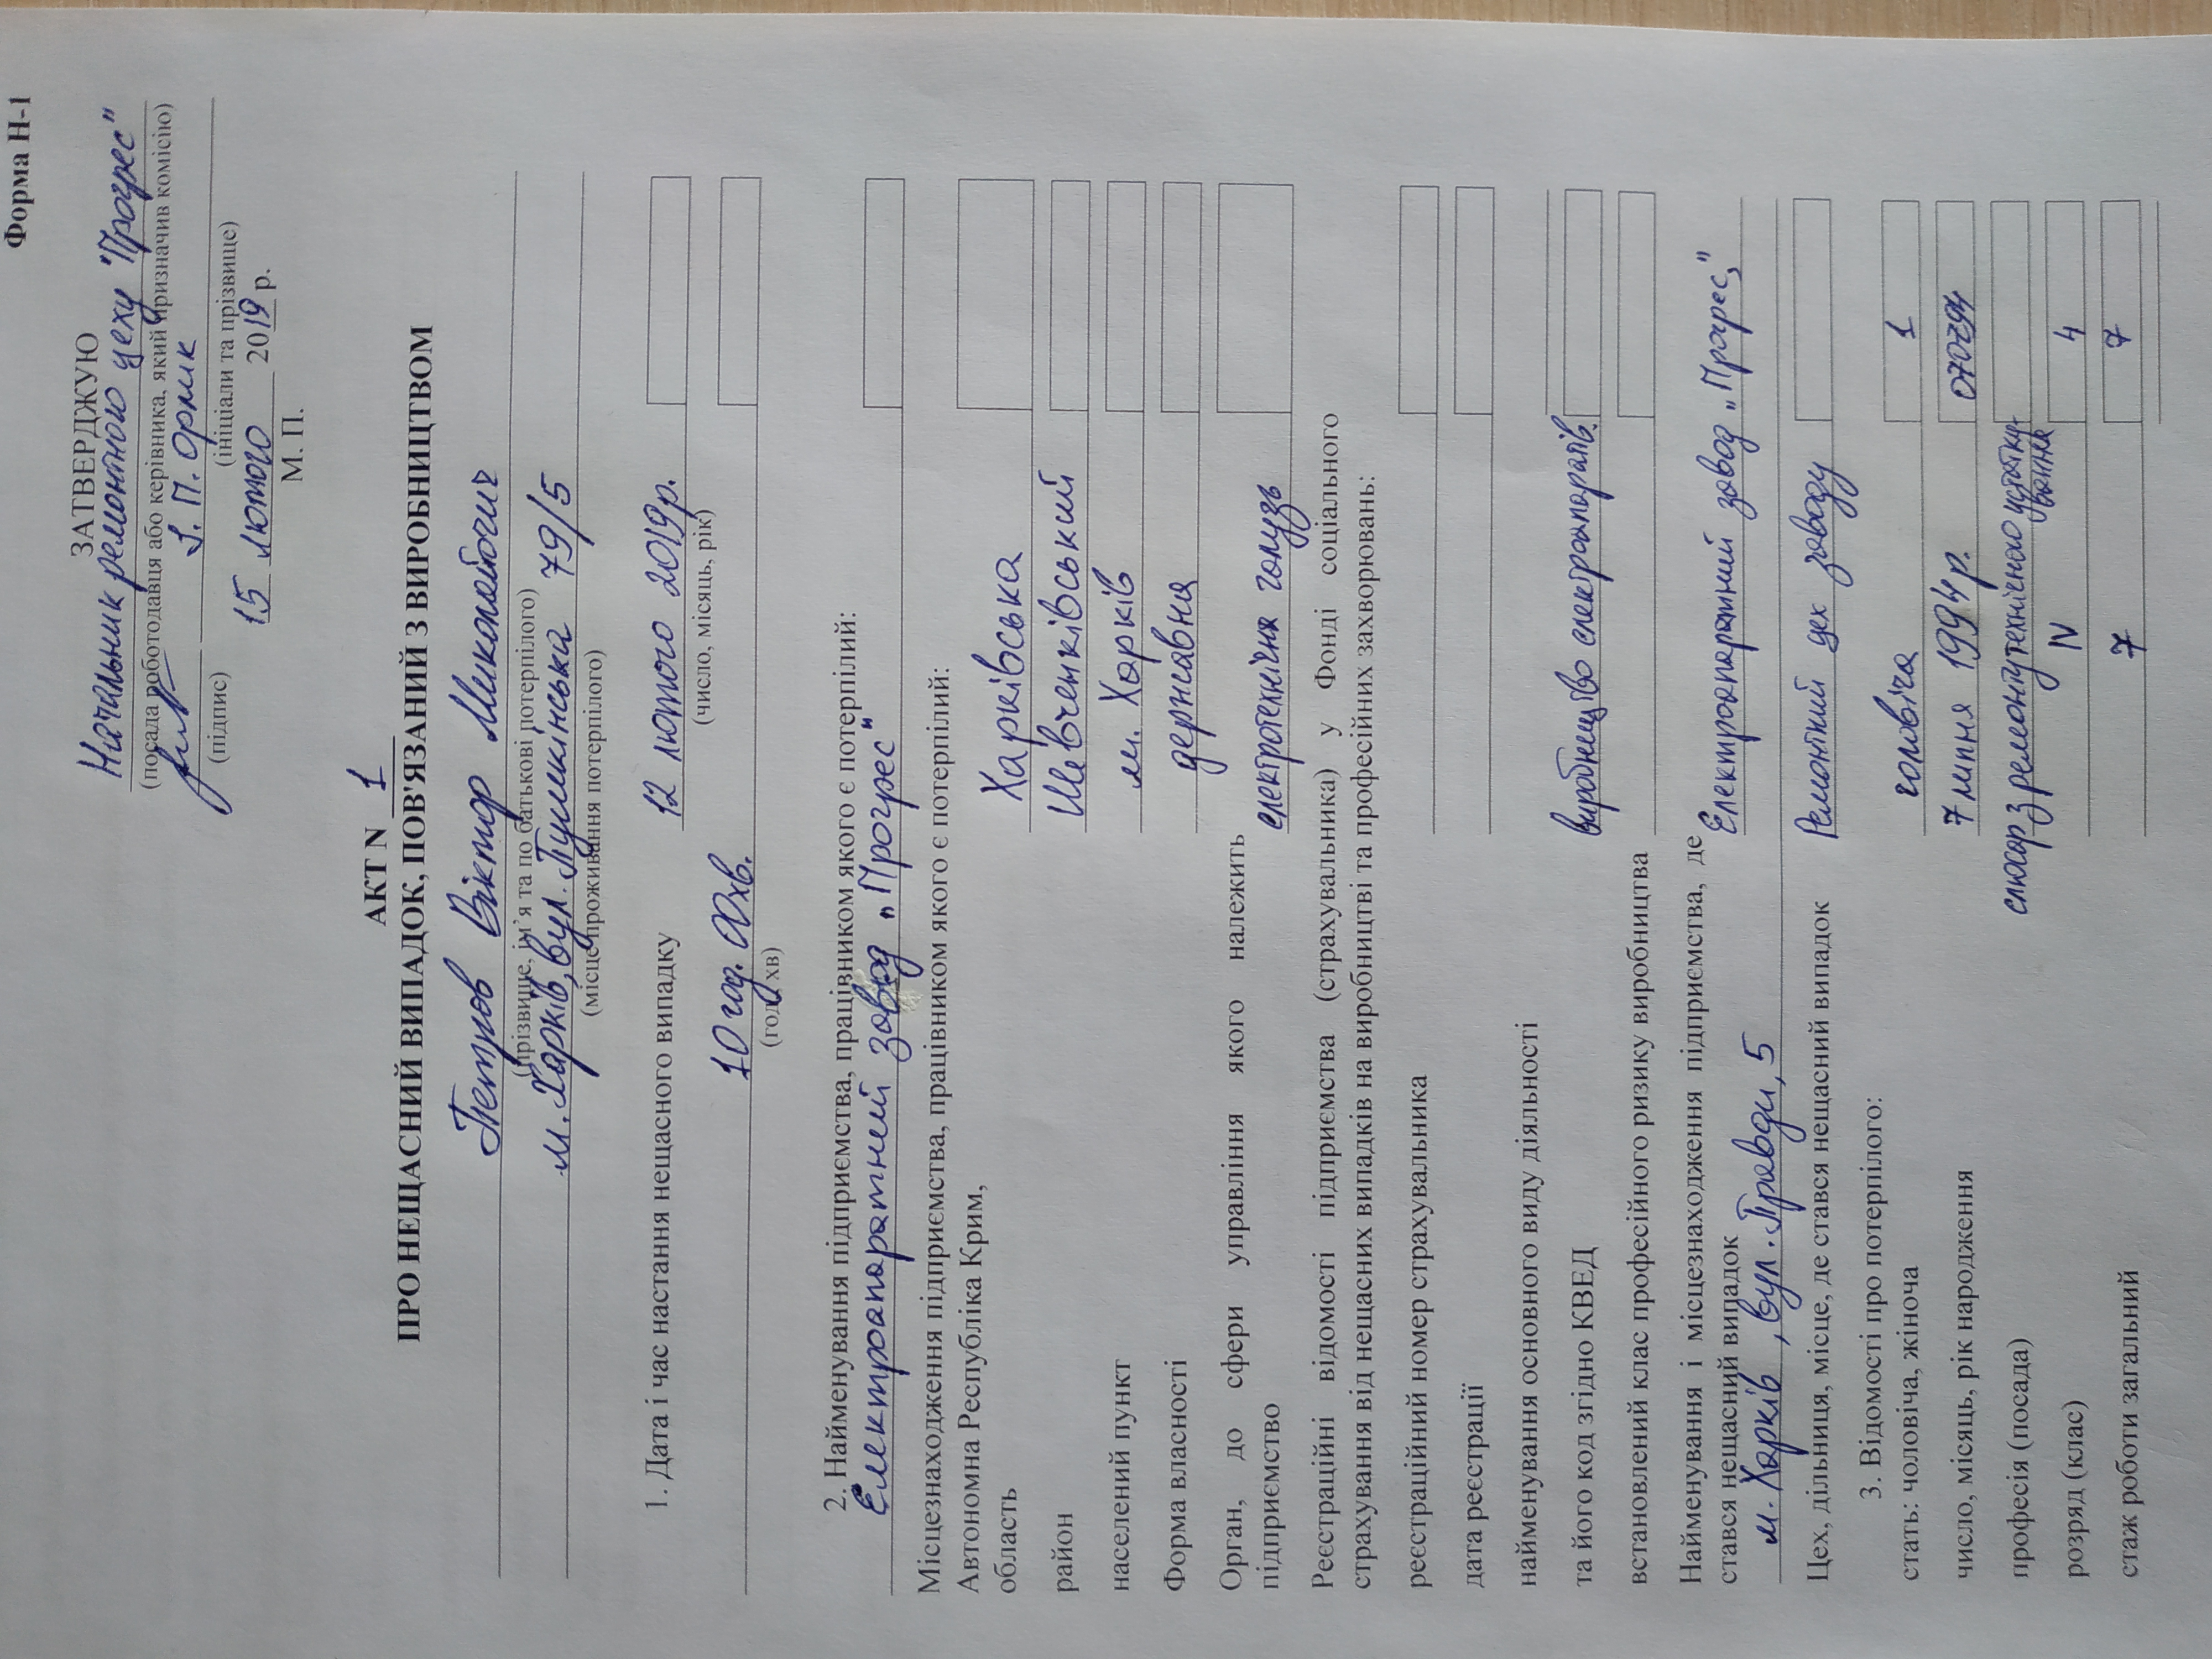 Форма Н-1
ЗАТВЕРДЖУЮ
Начальник ремонтного цеху "Прогрес"
(посада роботодавця або керівника, який призначив комісію)
І. П. Орлик
(підпис) (ініціали та прізвище)
15 лютого 2019 р.
М. П.
АКТ N 1
ПРО НЕЩАСНИЙ ВИПАДОК, ПОВ'ЯЗАНИЙ З ВИРОБНИЦТВОМ
Петров Віктор Миколайович
(прізвище, ім'я та по батькові потерпілого)
м. Харків, вул. Пушкінська 79/5
(місце проживання потерпілого)
1. Дата і час настання нещасного випадку 12 лютого 2019р.
(число, місяць, рік)
10 год. 00хв.
(год, хв)
2. Найменування підприємства, працівником якого є потерпілий:
Електроапаратний завод „Прогрес"
Місцезнаходження підприємства, працівником якого є потерпілий:
Автономна Республіка Крим,
область Харківська
район Шевченківський
населений пункт м. Харків
Форма власності державна
Орган, до сфери управління якого належить
підприємство електротехнічна галузь
Реєстраційні відомості підприємства (страхувальника) у Фонді соціального
страхування від нещасних випадків на виробництві та професійних захворювань:
реєстраційний номер страхувальника
дата реєстрації
найменування основного виду діяльності
та його код згідно КВЕД виробництво електроапаратів
встановлений клас професійного ризику виробництва
Найменування і місцезнаходження підприємства, де
стався нещасний випадок Електроапаратний завод „Прогрес,"
м. Харків, вул. Правди, 5
Цех, дільниця, місце, де стався нещасний випадок Ремонтний цех заводу
3. Відомості про потерпілого:
стать: чоловіча, жіноча чоловіча 1
число, місяць, рік народження 7 липня 1994 р. 070794
професія (посада) слюсар з ремонту технічного устатку-
вання
розряд (клас) IV 4
стаж роботи загальний 7 7